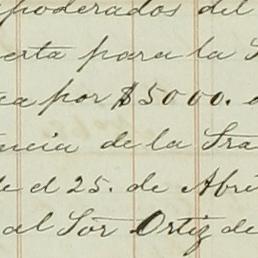 poderados del
erta para la S
a por $5000. 
ncia de la Sra
e el 25. de Abri
al Sor Ortiz de